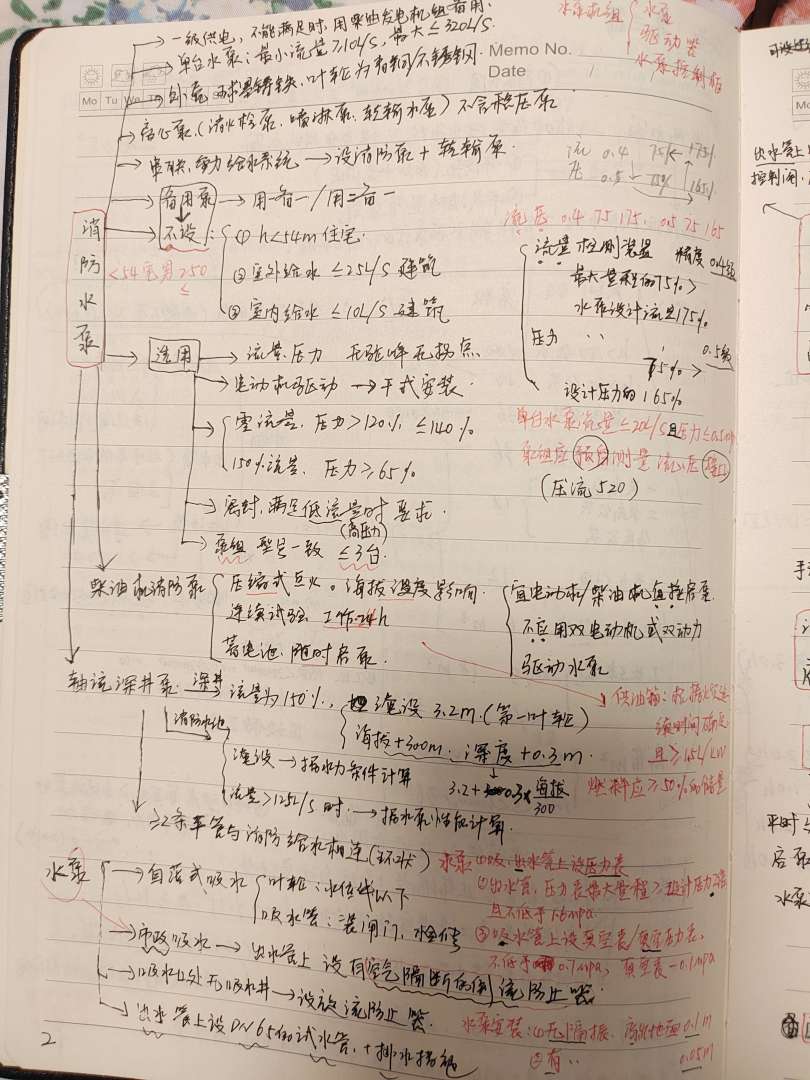 一级供电,不能满足时,用柴油发电机组备用.
单台水泵:最小流量≥10L/s,最大≤320L/s.
Memo No.
Date
Mo Tu We
外壳 球墨铸铁,叶轮为青铜/不锈钢.
离心泵.(消火栓泵.喷淋泵.转输水泵)不含稳压泵
串联.给水系统→设消防泵+转输泵.
备用泵→用一备一/用二备一
不设:①h<54m住宅.
②室外给水≤25L/s建筑
③室内给水≤10L/s建筑
消防水泵
水泵机组
水泵
驱动器
水泵控制柜
流 0.4 75% 175%
压 0.5 165%
流压 0.4 75 175. 0.5 75 165
流量检测装置 精度0.4级
最大量程的75%>
水泵设计流量175%
压力 ..
75%→0.5级
设计压力的165%
单台水泵流量≤20L/s且压力≤0.5mpa
泵组应预留测量流压接口
(压流520)
选用→流量.压力 无驼峰无拐点
电动机驱动→干式安装.
零流量.压力>120% ≤140%
150%流量.压力≥65%
密封,满足低流量时要求.
(高压力)
泵组 型号一致 ≤3台.
柴油机消防泵
压缩式点火。海拔温度影响.
连续试验 工作24h
蓄电池.随时启泵.
宜电动机/柴油机直接启泵
不应用双电动机或双动力
驱动水泵
轴流深井泵.深井 流量为150%.
淹没3.2m.(第一叶轮)
海拔+300m.深度+0.3m.
3.2+0.3×海拔/300
消防水池
淹没→据水力条件计算
流量>125L/s时.→据水泵性能计算.
≥2条车管与消防给水相连(环状)
供油箱:根据火灾延
续时间确定
且≥1.5L/kW
燃料应≥50%的储量
水泵
自灌式吸水
叶轮:水位线以下
吸水管:装闸门,
市政吸水→出水管上设有空气隔断的倒流防止器.
吸水口处无吸水井→设放流防止器.
出水管上设DN65的试水管.+排水措施
水泵①吸.出水管上设压力表
①出水管.压力表最大量程≥设计压力2倍
且不低于1.6mpa.
②吸水管上设真空表/真空压力表,
不低于0.7mpa, 真空表-0.1mpa
水泵安装:①无隔振.高出地面0.1m
②有.. 0.05m
2
出水管上
控制阀.
平时
启泵
水泵